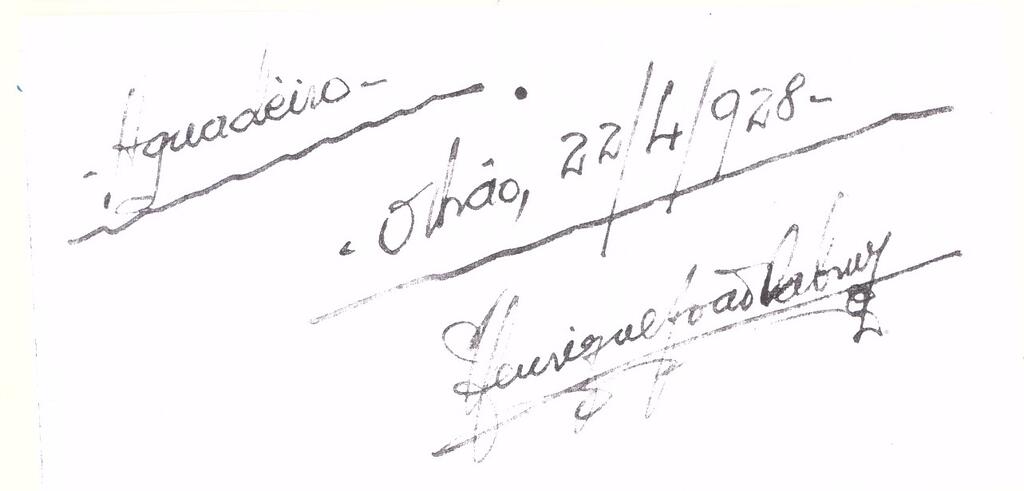 - Aguadeiro -
- Olhão, 22/4/928 -
Henrique João